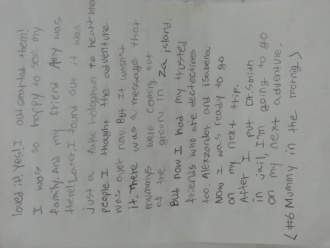 loved it. Yes! I outsmarted them!
I was so happy to see my
family. And my friend Amy was
there! Later, I found out it was
just a fake hologram to
people. I thought the adventure
was over now. But it wasn't
it. There was a message that
mummys were coming out
of the ground in Za island.
But now I had my trusted
friends who are dectectives
too. Alexzander and Isabella.
Now I was ready to go
on my next trip.
After I put Dr. Smith
in jail, I'm going to go
on my next adventure.
(#6 Mummy in the morning)